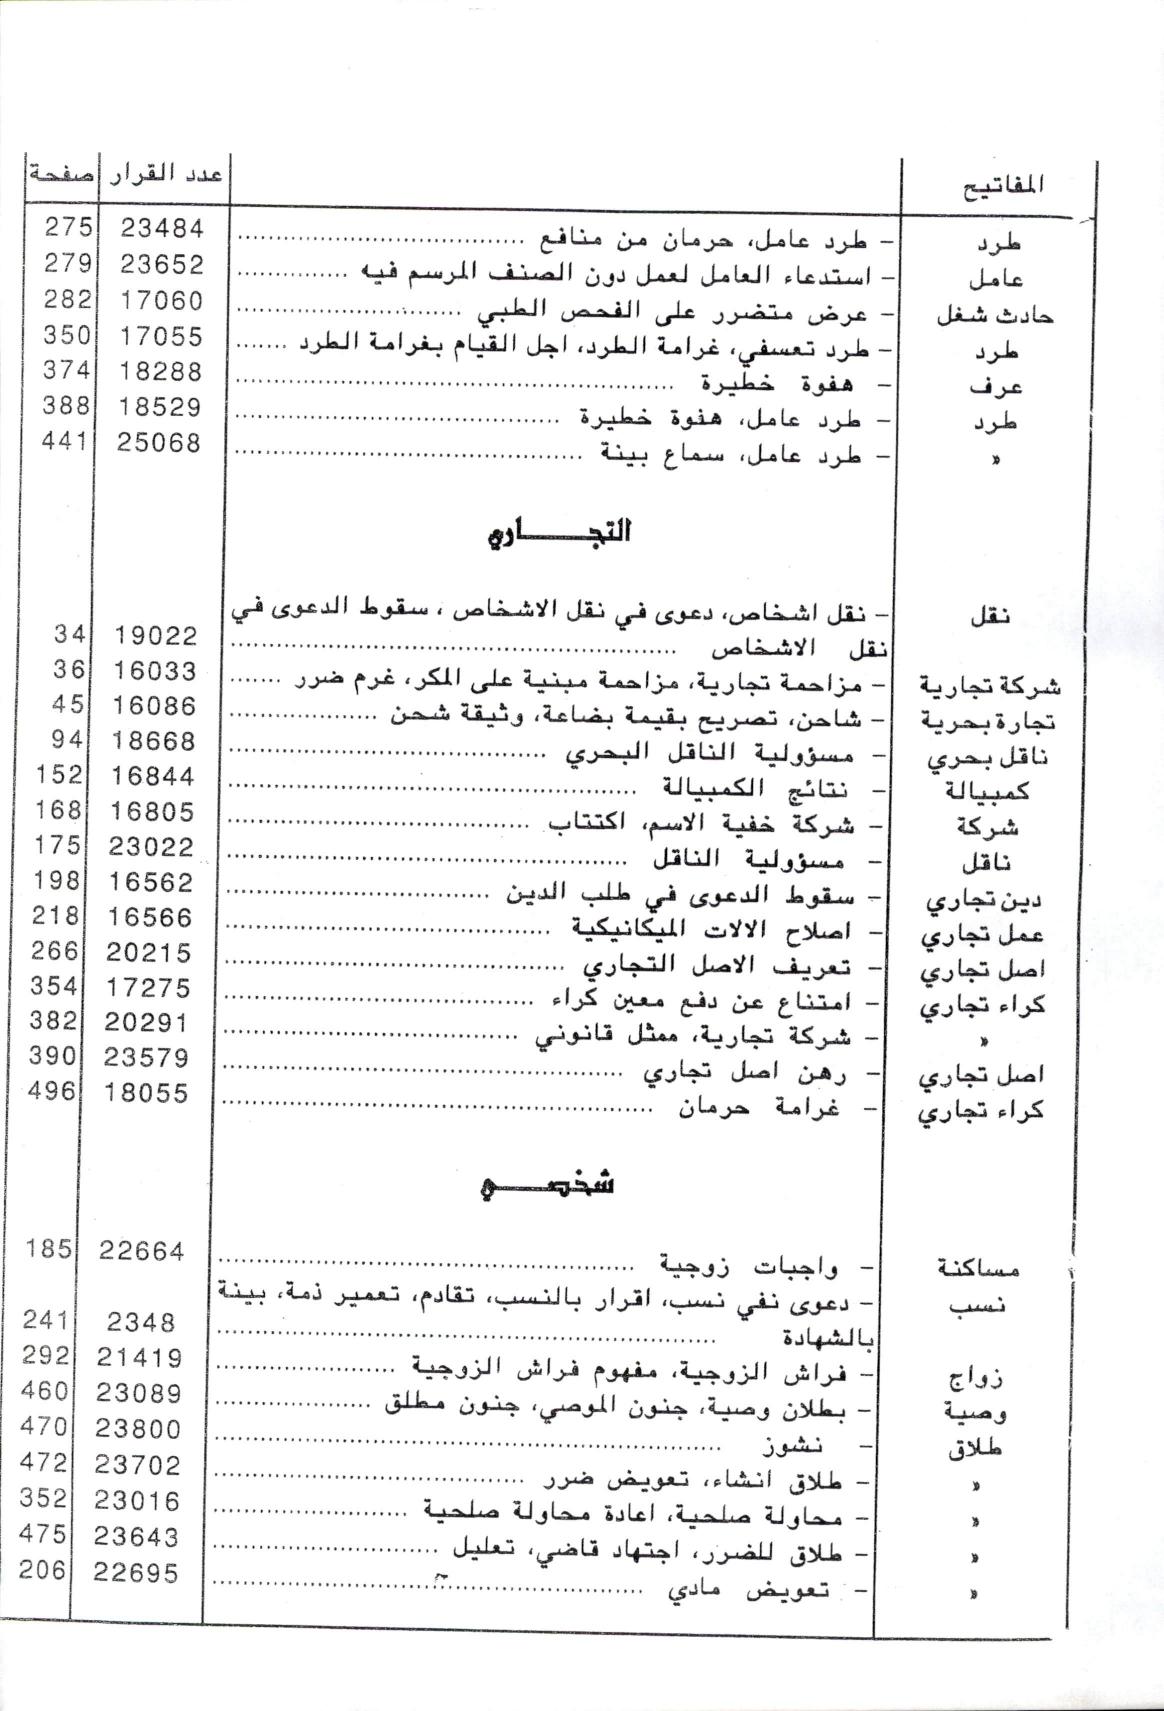 المفاتيح عدد القرار صفحة
طرد – طرد عامل، حرمان من منافع ........ 23484 275
عامل – استدعاء العامل لعمل دون الصنف المرسم فيه ........ 23652 279
حادث شغل – عرض متضرر على الفحص الطبي ........ 17060 282
طرد – طرد تعسفي، غرامة الطرد، اجل القيام بغرامة الطرد ....... 17055 350
عرف – هفوة خطيرة ........ 18288 374
طرد – طرد عامل، هنوة خطيرة ........ 18529 388
« – طرد عامل، سماع بينة ........ 25068 441
التجــــــاري
نقل – نقل اشخاص، دعوى في نقل الاشخاص ، سقوط الدعوى في
نقل الاشخاص ........ 19022 34
شركة تجارية – مزاحمة تجارية، مزاحمة مبنية على المكر، غرم ضرر ....... 16033 36
تجارة بحرية – شاحن، تصريح بقيمة بضاعة، وثيقة شحن ........ 16086 45
ناقل بحري – مسؤولية الناقل البحري ........ 18668 94
كمبيالة – نتائج الكمبيالة ........ 16844 152
شركة – شركة خفية الاسم، اكتتاب ........ 16805 168
ناقل – مسؤولية الناقل ........ 23022 175
دين تجاري – سقوط الدعوى في طلب الدين ........ 16562 198
عمل تجاري – اصلاح الالات الميكانيكية ........ 16566 218
اصل تجاري – تعريف الاصل التجاري ........ 20215 266
كراء تجاري – امتناع عن دفع معين كراء ........ 17275 354
« – شركة تجارية، ممثل قانوني ........ 20291 382
اصل تجاري – رهن اصل تجاري ........ 23579 390
كراء تجاري – غرامة حرمان ........ 18055 496
شخصــــي
مساكنة – واجبات زوجية ........ 22664 185
نسب – دعوى نفي نسب، اقرار بالنسب، تقادم، تعمير ذمة، بينة
بالشهادة ........ 2348 241
زواج – فراش الزوجية، مفهوم فراش الزوجية ........ 21419 292
وصية – بطلان وصية، جنون الموصي، جنون مطلق ........ 23089 460
طلاق – نشوز ........ 23800 470
« – طلاق انشاء، تعويض ضرر ........ 23702 472
« – محاولة صلحية، اعادة محاولة صلحية ........ 23016 352
« – طلاق للضرر، اجتهاد قاضي، تعليل ........ 23643 475
« – تعويض مادي ........ 22695 206